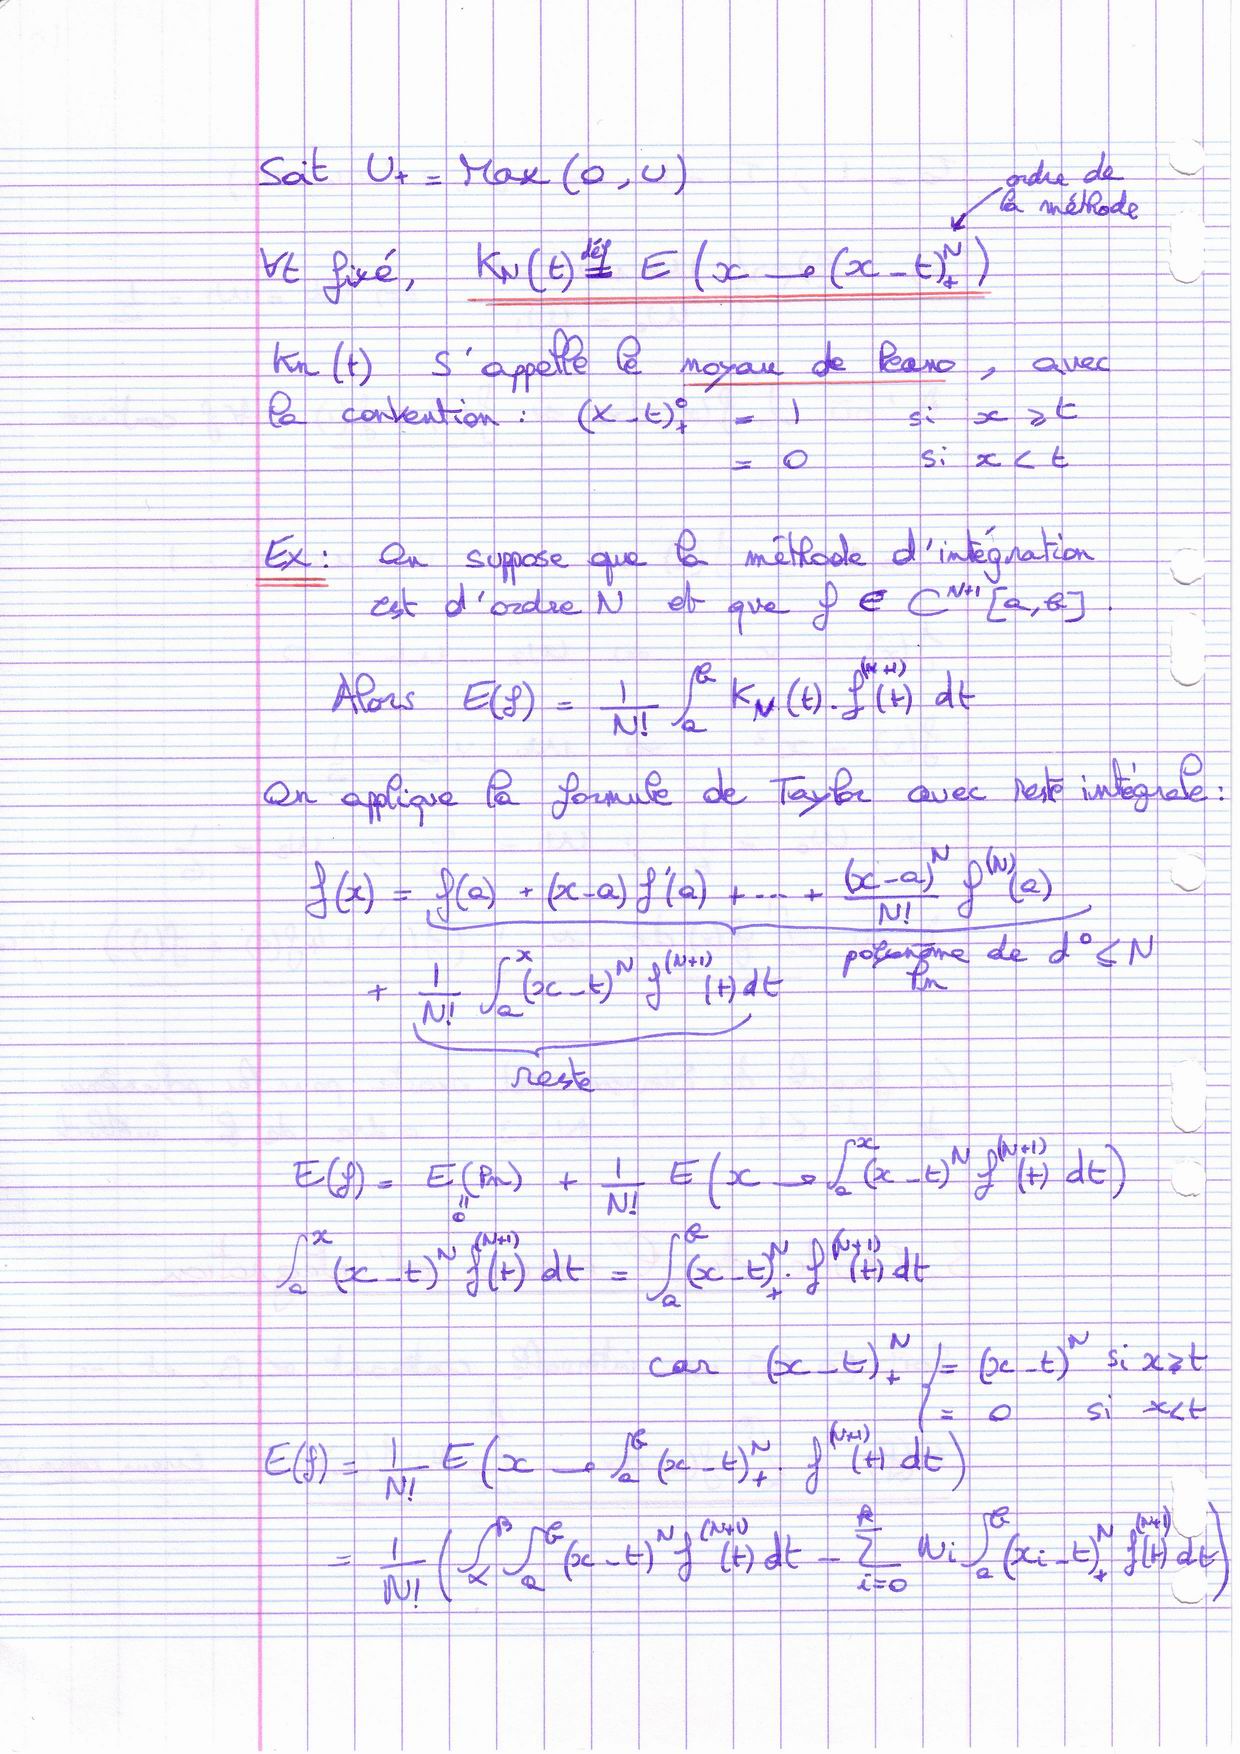 Soit U₊ = Max (0, U)
ordre de
la méthode
∀t fixé, K_N(t) ≝ E (x → (x-t)₊^N)
K_n (t) s'appelle le noyau de Peano, avec
la convention : (x-t)₊^0 = 1 si x ≥ t
= 0 si x < t
Ex : On suppose que la méthode d'intégration
est d'ordre N et que f ∈ C^{N+1} [a, b].
Alors E(f) = 1/N! ∫_a^b K_N(t). f^{(N+1)}(t) dt
On applique la formule de Taylor avec reste intégrale :
f(x) = f(a) + (x-a) f'(a) + ---- + (x-a)^N/N! f^{(N)}(a)
polynôme de d° ≤ N
P_n
+ 1/N! ∫_a^x (x-t)^N f^{(N+1)}(t) dt
reste
E(f) = E(P_n) + 1/N! E (x → ∫_a^x (x-t)^N f^{(N+1)}(t) dt)
" 0
∫_a^x (x-t)^N f^{(N+1)}(t) dt = ∫_a^b (x-t)₊^N . f^{(N+1)}(t) dt
car (x-t)₊^N { = (x-t)^N si x ≥ t
= 0 si x < t
E(f) = 1/N! E (x → ∫_a^b (x-t)₊^N . f^{(N+1)}(t) dt)
= 1/N! (∫_α^β ∫_a^b (x-t)^N f^{(N+1)}(t) dt - Σ_{i=0}^k w_i ∫_a^b (x_i-t)₊^N f^{(N+1)}(t) dt)